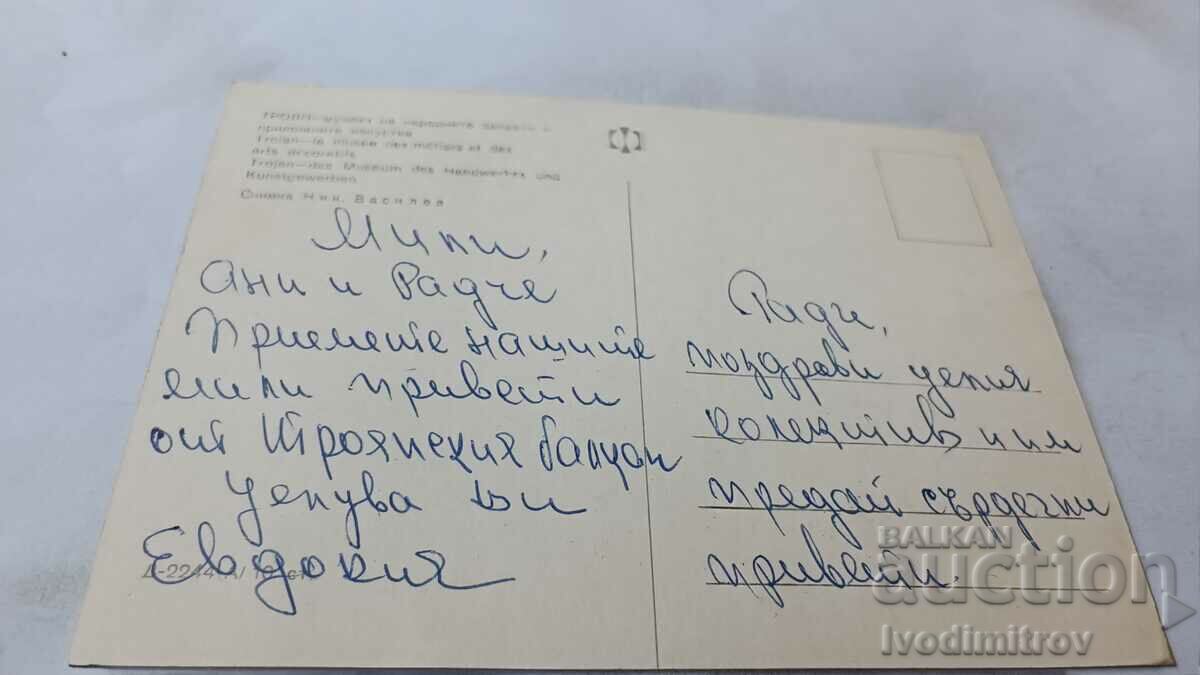 ТРОЯН—музеят на народните занаяти и
приложните изкуства
Trojan—le musée des métiers et des
arts décoratifs
Trojan—das Museum des Handwerkes und
Kunstgewerben
Снимка Ник. Василев
Мили,
Ани и Радче
Приемете нашите
мили привети
от Троянския балкан
Целува Ви
Евдокия
Д-2244-А/
Радче,
поздрави целия
колектив и им
предай сърдечни
привети.
BALKAN
auction
Ivodimitrov